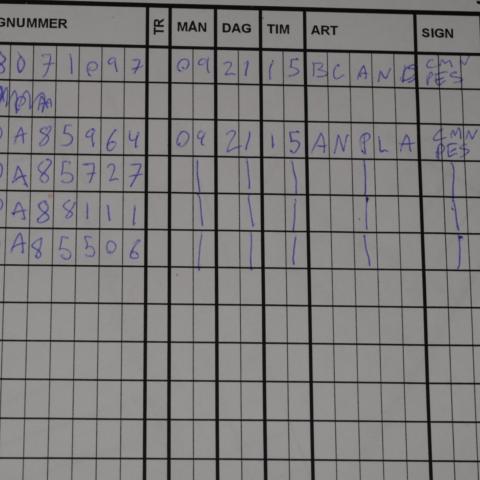 GNUMMER TR MÅN DAG TIM ART SIGN
8071097 09 21 15 BCAND CMN PES
A85964 09 21 15 ANPLA CMN PES
A85727 | | | | |
A88111 | | | | |
A85506 | | | | |